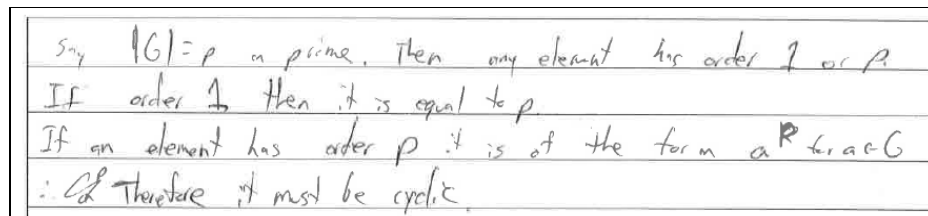 Say |G| = p a prime. Then any element has order 1 or p.
If order 1 then it is equal to p.
If an element has order p it is of the form a^p for a ∈ G
∴ Therefore it must be cyclic.